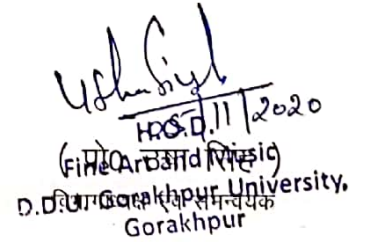 Usha Singh
11/2020
H.O.D.
(प्रो० उषा सिंह)
Fine Art and Music
विभागाध्यक्ष एवं समन्वयक
D.D.U. Gorakhpur University,
Gorakhpur